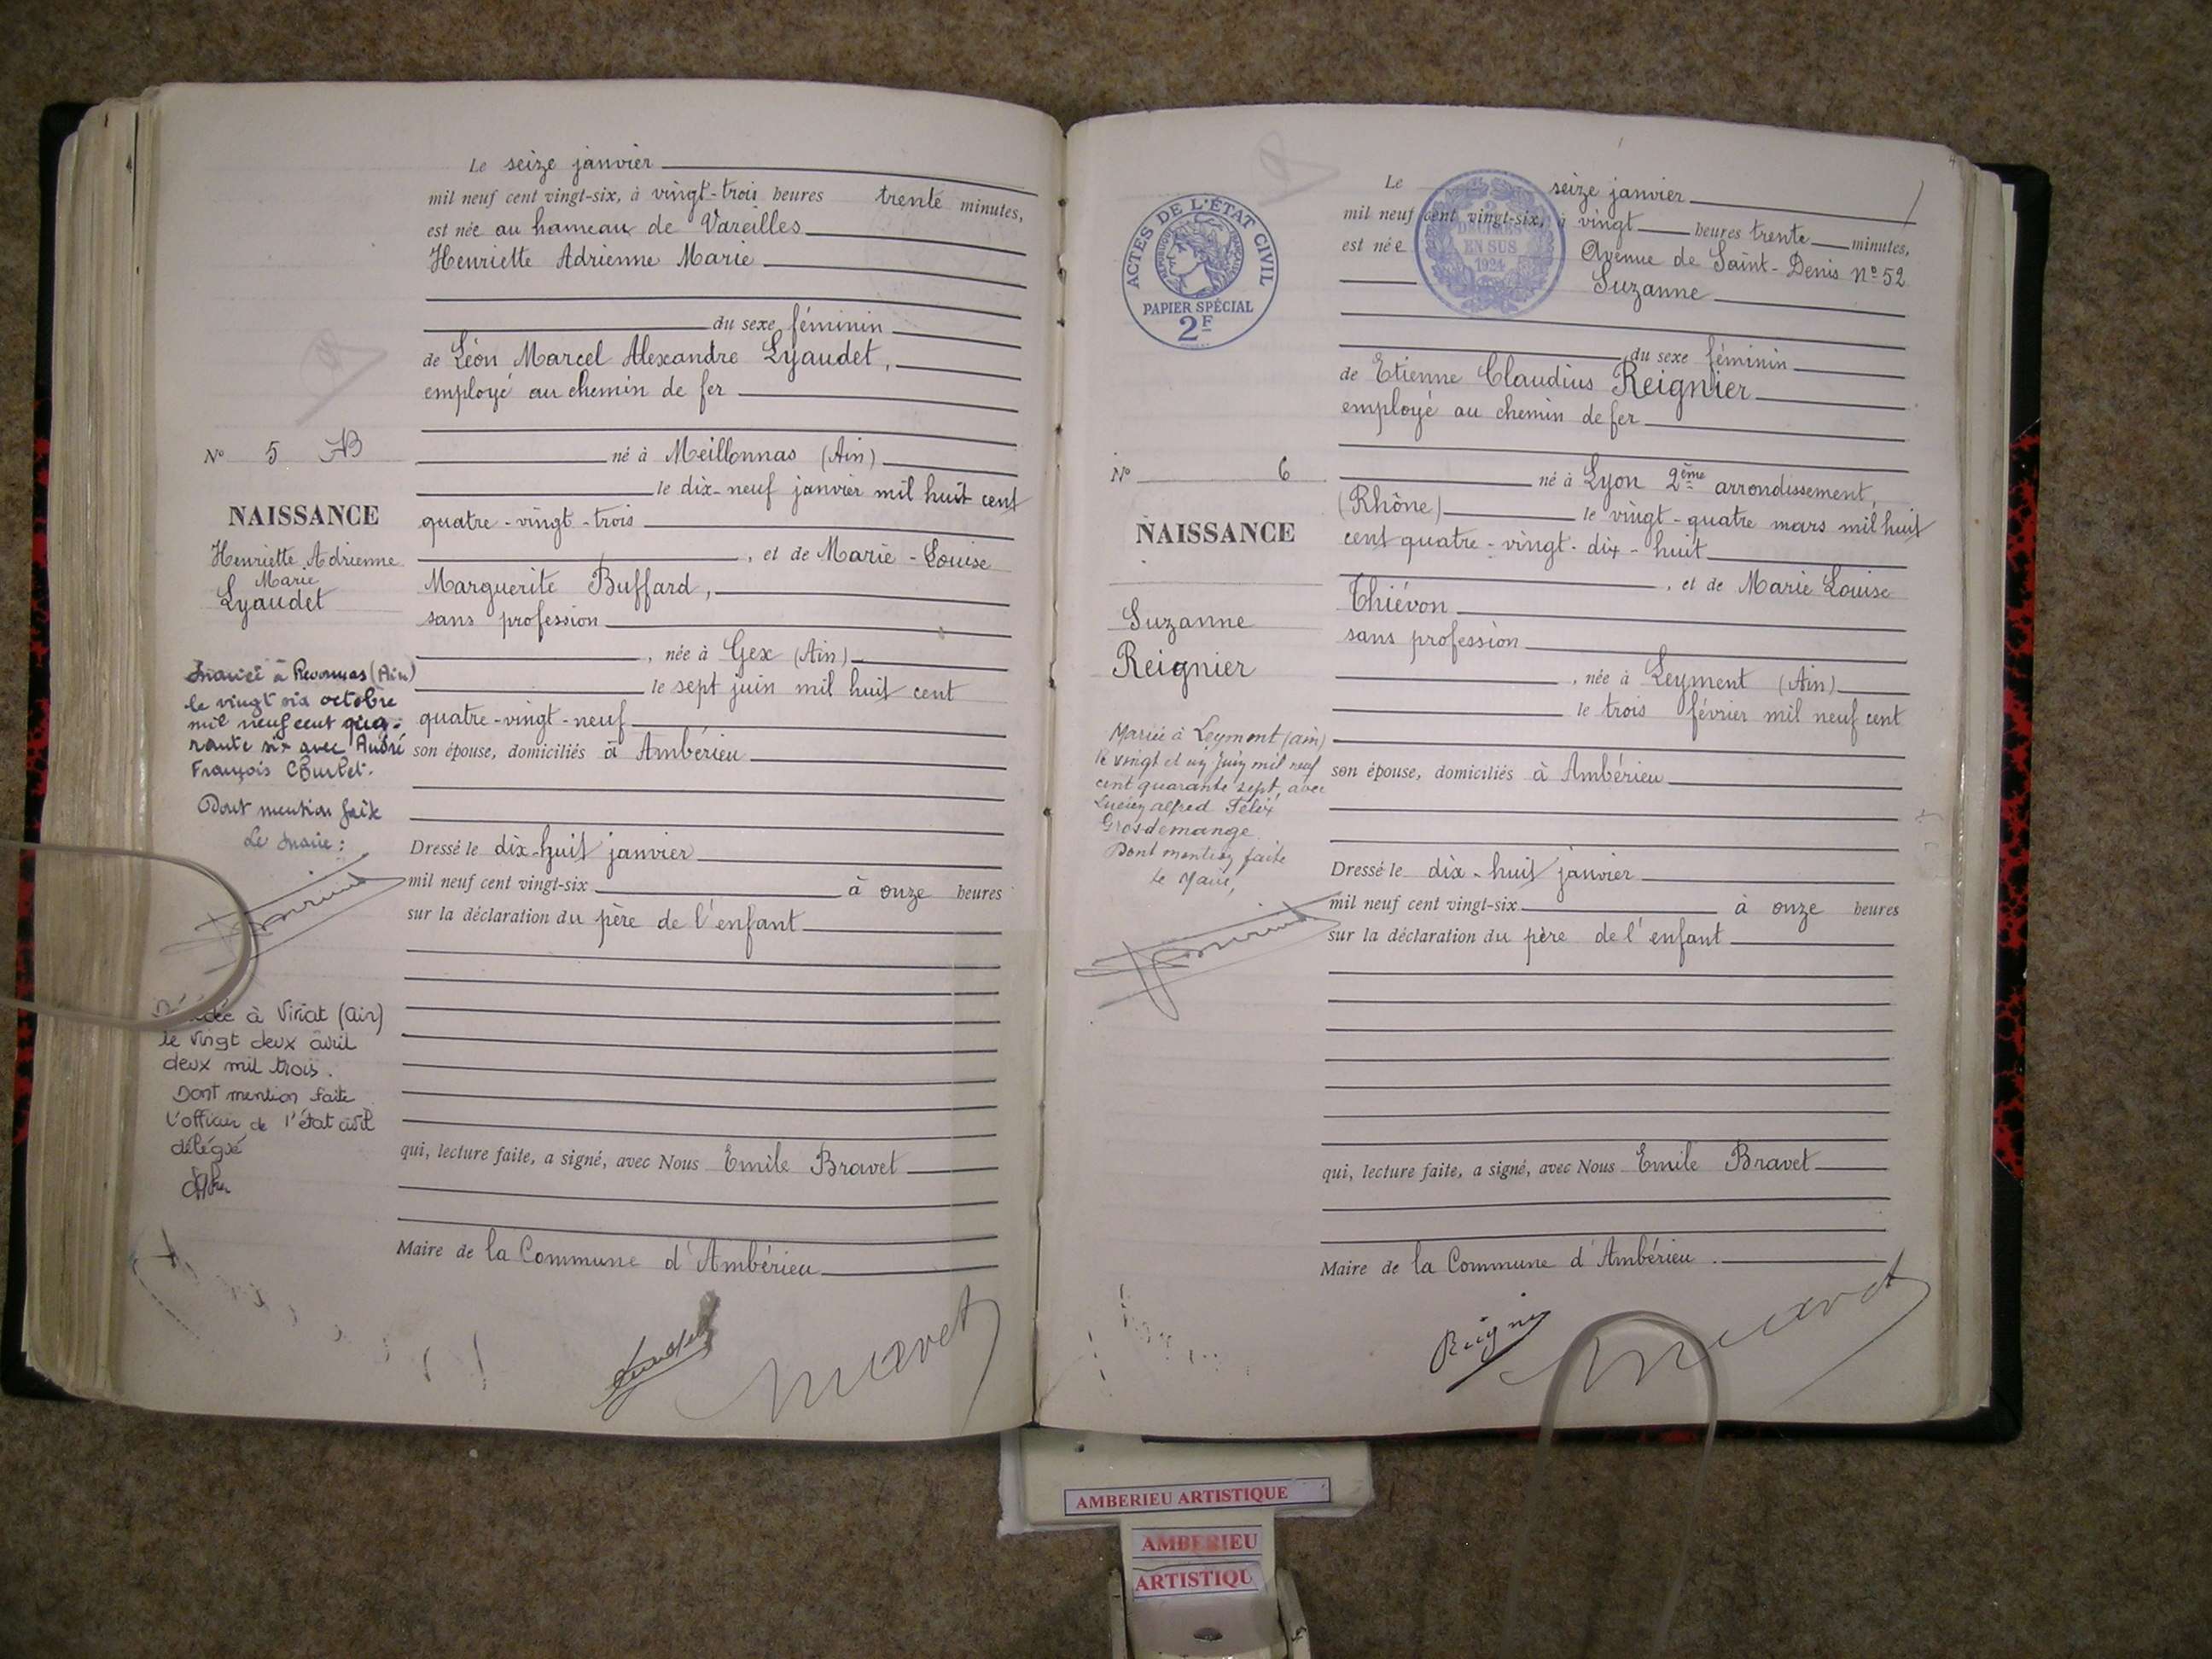 Le seize janvier
mil neuf cent vingt-six, à vingt-trois heures trente minutes,
est née au hameau de Vareilles
Henriette Adrienne Marie
du sexe féminin
de Léon Marcel Alexandre Lyaudet,
employé au chemin de fer
né à Meillonnas (Ain)
le dix-neuf janvier mil huit cent
quatre-vingt-trois
, et de Marie-Louise
Marguerite Buffard,
sans profession
, née à Gex (Ain)
le sept juin mil huit cent
quatre-vingt-neuf
son épouse, domiciliés à Ambérieu
Dressé le dix-huit janvier
mil neuf cent vingt-six à onze heures
sur la déclaration du père de l'enfant
qui, lecture faite, a signé, avec Nous Emile Bravet
Maire de la Commune d'Ambérieu
N° 5 AB
NAISSANCE
Henriette Adrienne
Marie
Lyaudet
à Revonnas (Ain)
le vingt six octobre
mil neuf cent qua-
rante six avec André
François
Dont mention faite
Le Maire:
à Viriat (Ain)
le vingt deux avril
deux mil trois.
Dont mention faite
L'officier de l'état civil
délégué
4
Le seize janvier
mil neuf cent vingt-six, à vingt heures trente minutes,
est née Avenue de Saint-Denis N° 52
Suzanne
du sexe féminin
de Etienne Claudius Reignier
employé au chemin de fer
né à Lyon 2ème arrondissement,
(Rhône) le vingt-quatre mars mil huit
cent quatre-vingt-dix-huit
, et de Marie Louise
Thiévon
sans profession
, née à Leyment (Ain)
le trois février mil neuf cent
son épouse, domiciliés à Ambérieu
Dressé le dix-huit janvier
mil neuf cent vingt-six à onze heures
sur la déclaration du père de l'enfant
qui, lecture faite, a signé, avec Nous Emile Bravet
Maire de la Commune d'Ambérieu.
ACTES DE L'ÉTAT CIVIL
RÉPUBLIQUE FRANÇAISE
PAPIER SPÉCIAL
2F
2
DÉCIMES
EN SUS
1924
N° 6
NAISSANCE
Suzanne
Reignier
Mariée à Leyment (Ain)
le vingt et un juin mil neuf
cent quarante sept, avec
Lucien Alfred Félix
Grosdemange.
Dont mention faite
Le Maire,
AMBERIEU ARTISTIQUE
AMBERIEU
ARTISTIQU